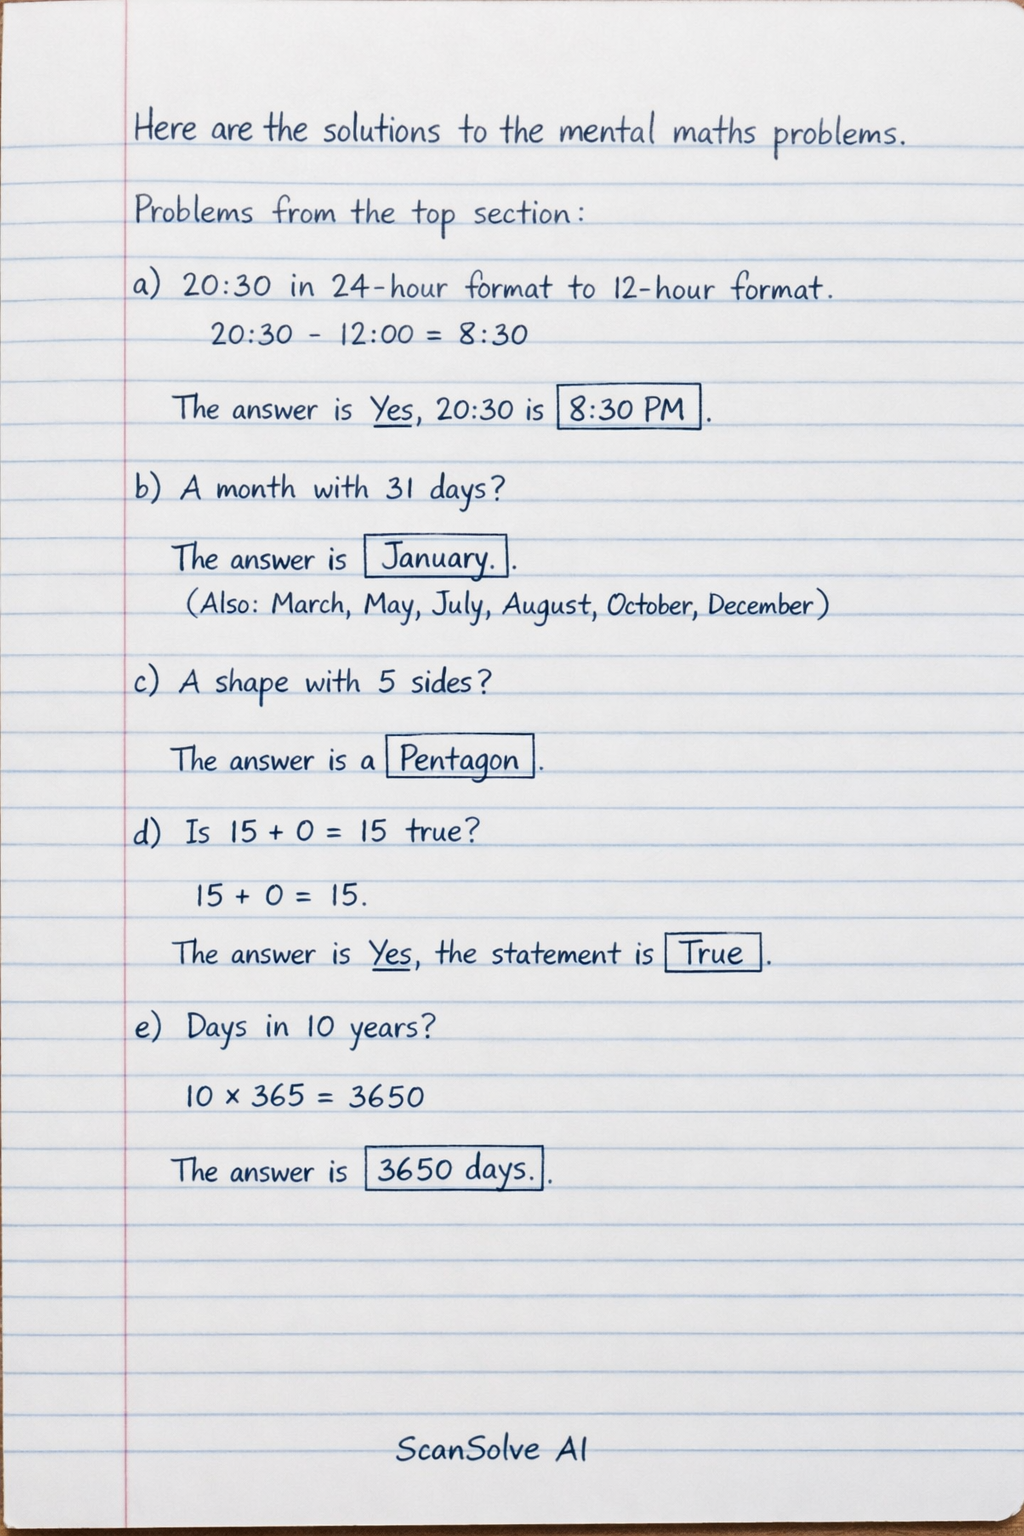 Here are the solutions to the mental maths problems.
Problems from the top section:
a) 20:30 in 24-hour format to 12-hour format.
20:30 - 12:00 = 8:30
The answer is Yes, 20:30 is 8:30 PM.
b) A month with 31 days?
The answer is January..
(Also: March, May, July, August, October, December)
c) A shape with 5 sides?
The answer is a Pentagon.
d) Is 15 + 0 = 15 true?
15 + 0 = 15.
The answer is Yes, the statement is True.
e) Days in 10 years?
10 × 365 = 3650
The answer is 3650 days..
ScanSolve AI